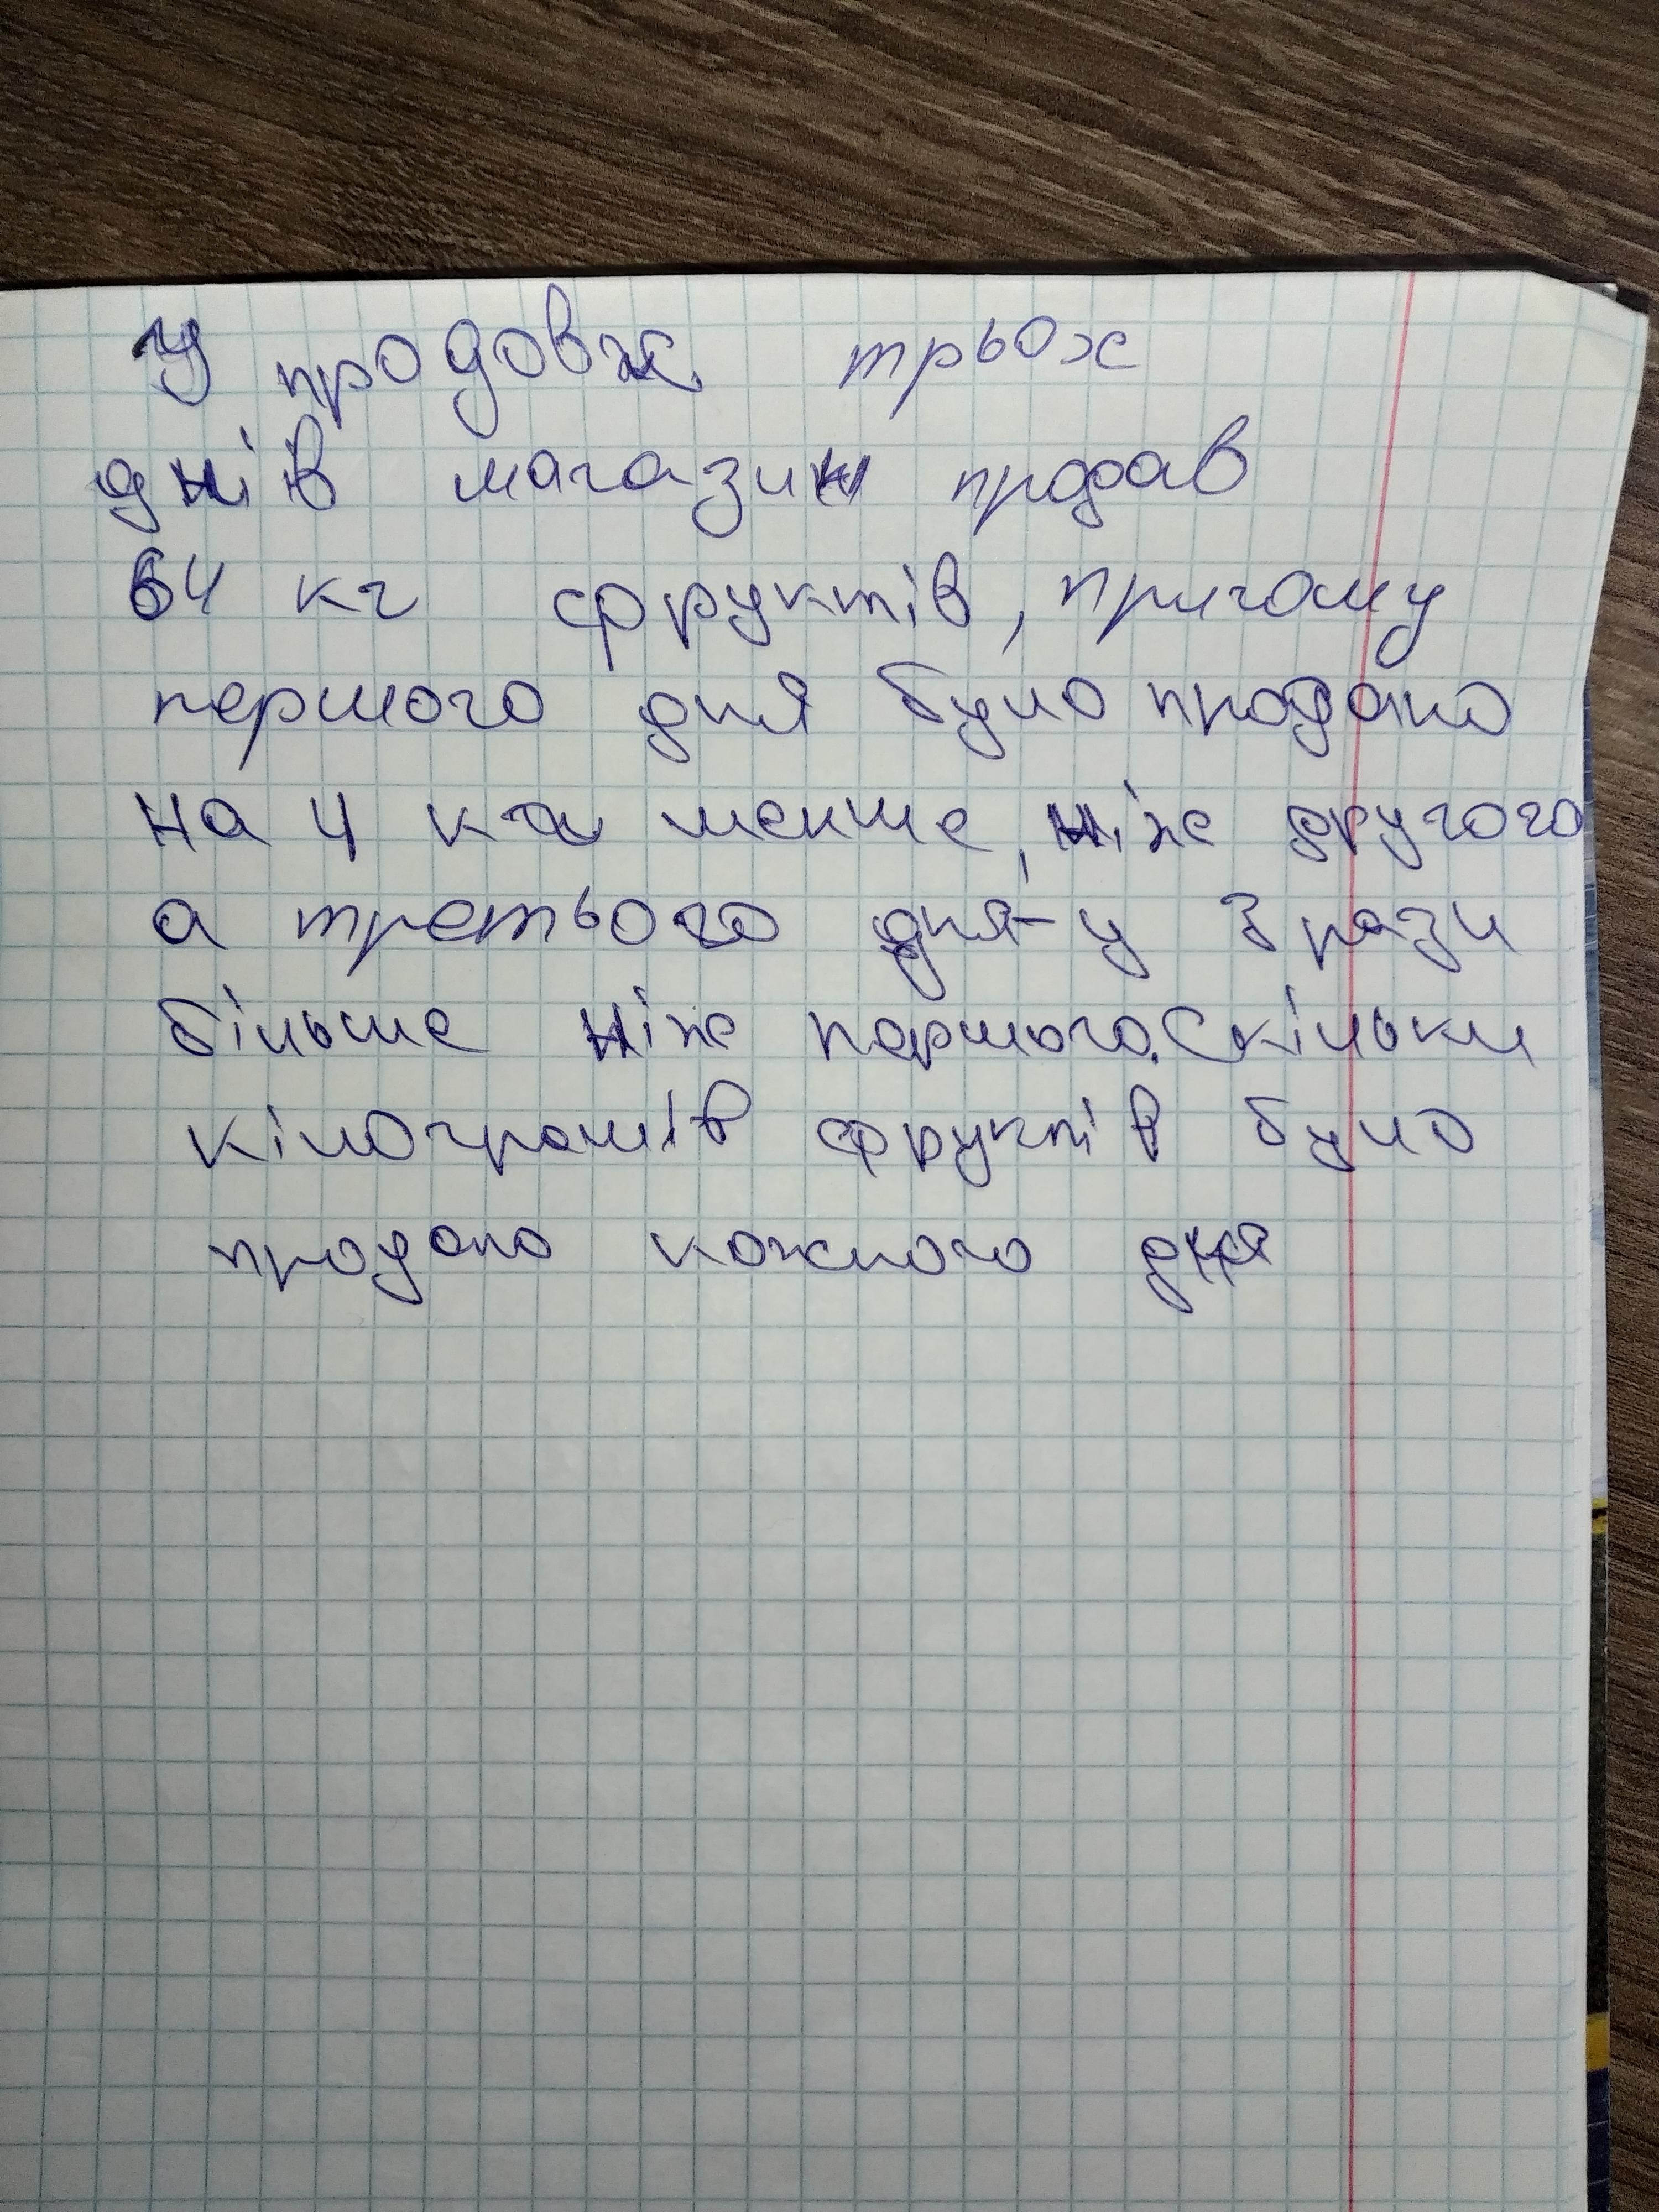 У продовж трьох
днів магазин продав
64 кг фруктів, причому
першого дня було продано
на 4 кг менше, ніж другого
а третього дня-у 3 рази
більше ніж першого. Скільки
кілограмів фруктів було
продано кожного дня